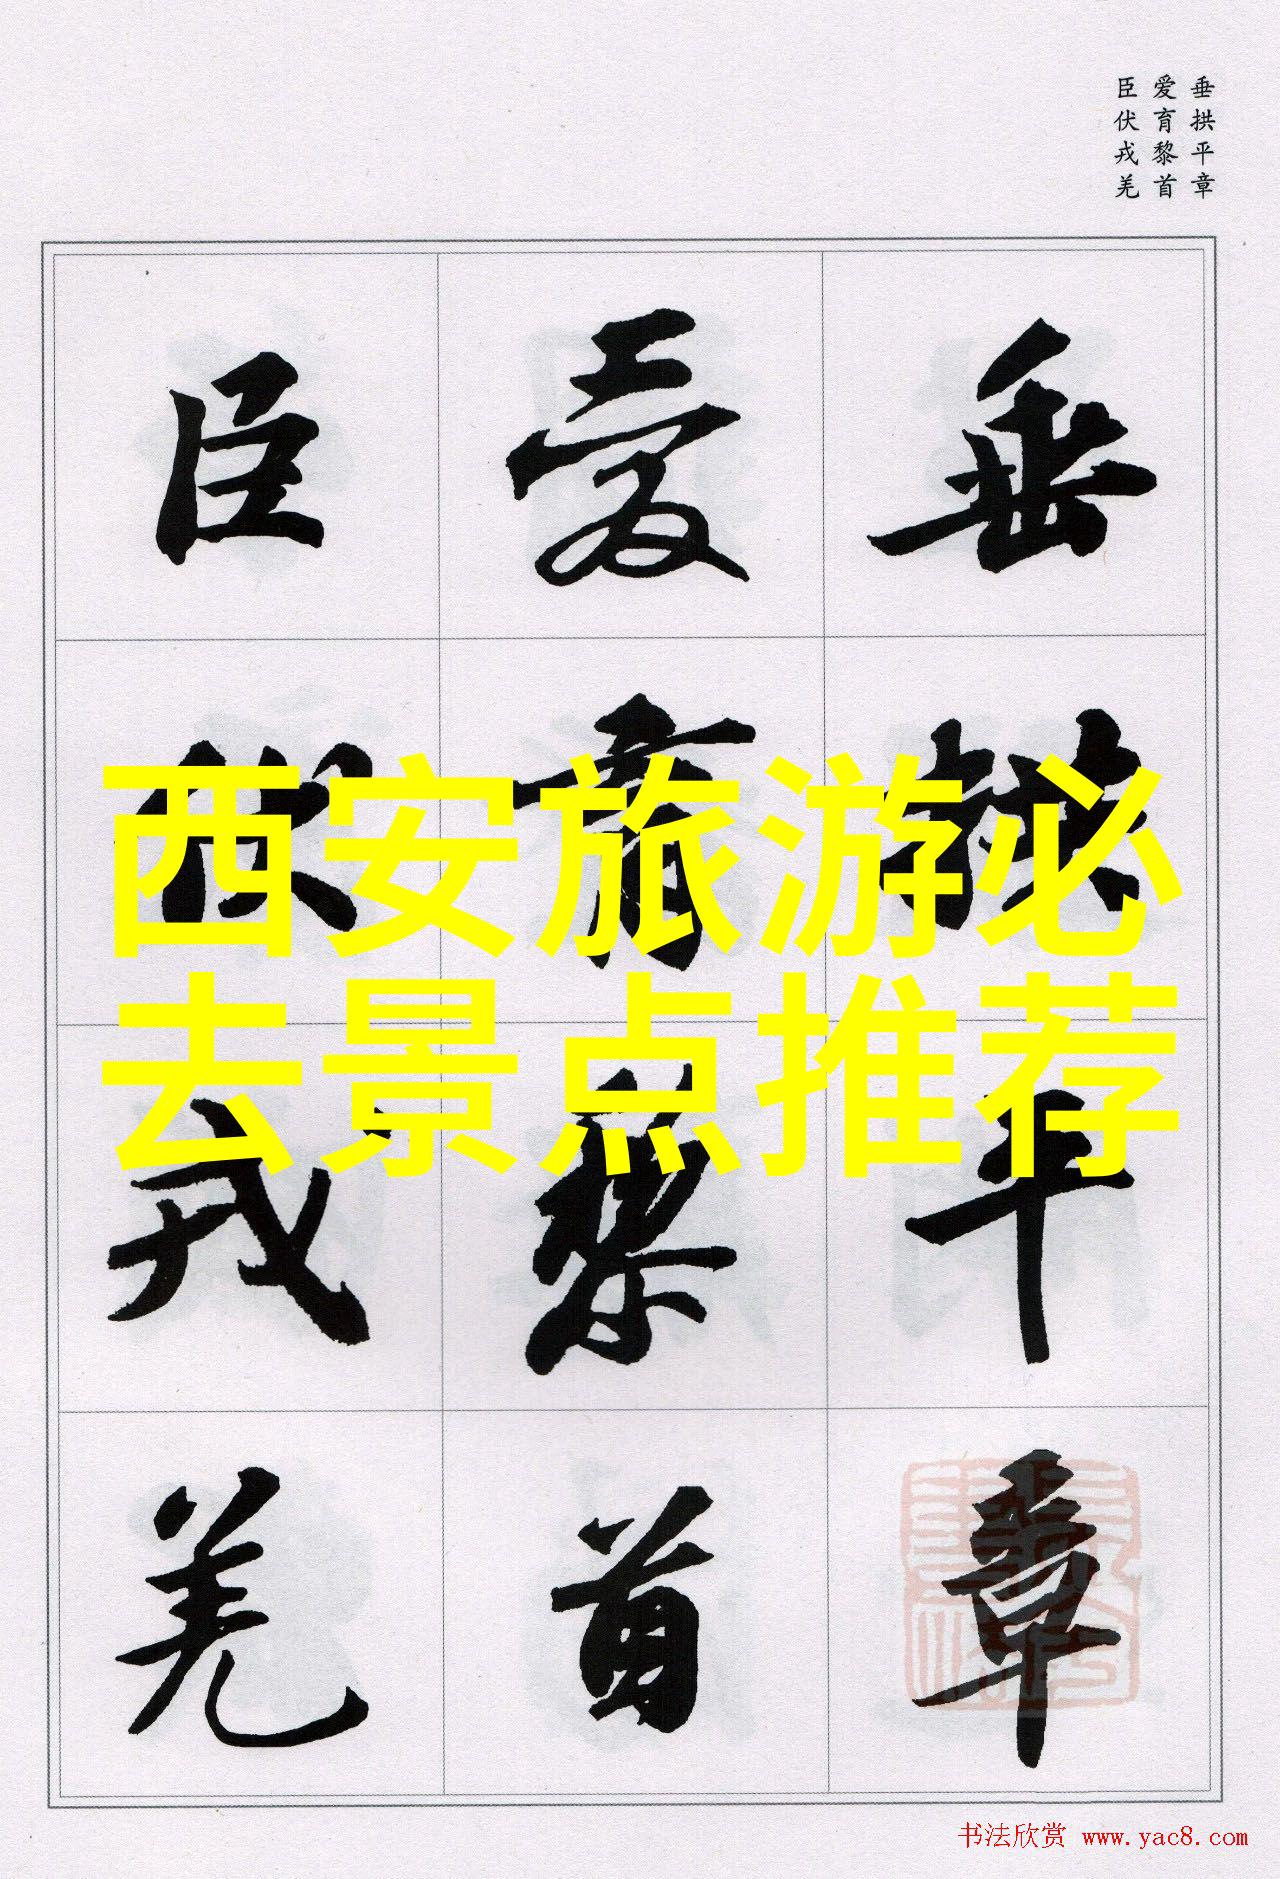 垂拱平章
爱育黎首
臣伏戎羌
垂拱平章
爱育黎首
臣伏戎羌
西安旅游必
去景点推荐
书法欣赏 www.yac8.com